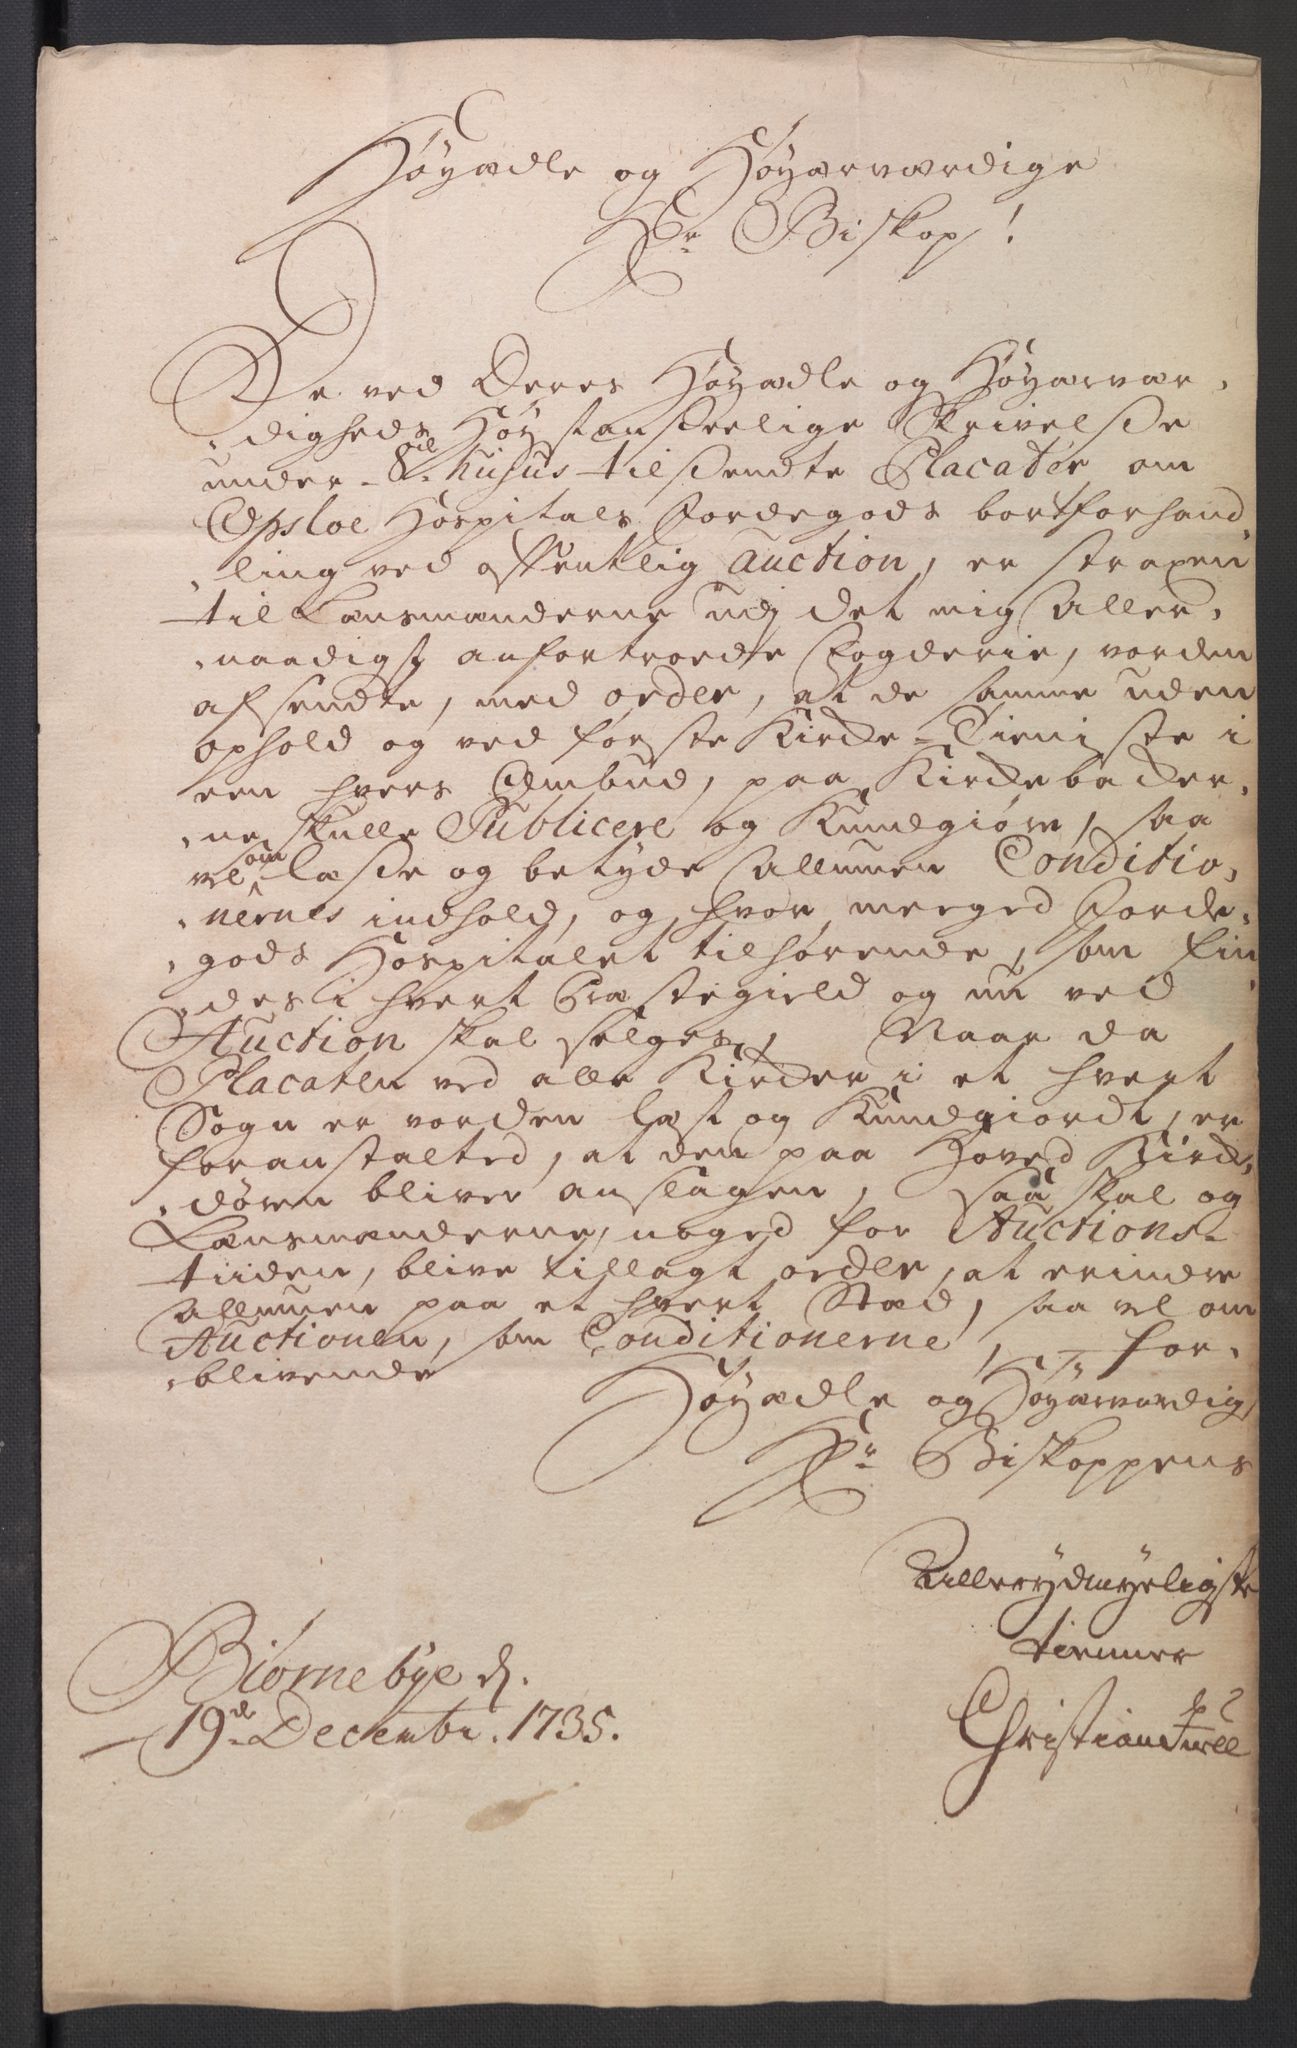 Høyædle og Høyærværdige
Hr Biskop!
De ved Deres Høyædle og Høyærvær-
-digheds Høystansteelige Skrivelse
under 8de hujus tilsendte Placater om
Opsloe Hospitals Jordegods bortforhand-
-ling ved offentlig Auction, er straxen
til Lænsmænderne udj det mig Aller-
-naadigst anfortroede Fogderie, vorden
afsendte, med ordre, at de samme uden
ophold og ved første Kirke-Tieniste i
een hvers Ombud, paa Kirkebacker-
-ne skulle Publicere og Kundgiøre, saa
vel som læse og betyde Allmuen Conditio-
-nernes indhold, og hvor meeged Jorde-
-gods Hospitalet tilhørende, som fin
-des i hvert Præstegield og nu ved
Auction skal sælges, Naar da
Placaten ved alle Kirker i et hvert
Sogn er vorden læst og Kundgiordt, er
foranstalted, at den paa Hoved Kirke-
-døren bliver anslagen, saa skal og
Lænsmænderne, noged for Auctions-
tiiden, blive tillagt ordre, at erindre
Allmuen paa et hvert Stæd, saa vel om
Auctionen, som Conditionerne, for-
-blivende
Høyædle og Høyærværdige
Hr Biskoppens
Allerydmygeligste
tienner
Christian
Biørnebye d.
19de Decembr. 1735.